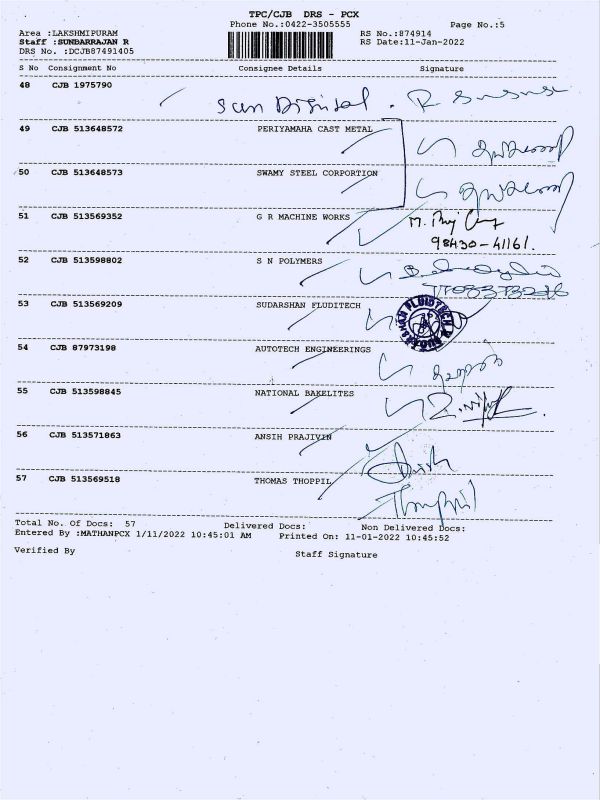 TPC/CJB DRS - PCX
Phone No.:0422-3505555 Page No.:5
Area :LAKSHMIPURAM RS No.:874914
Staff :SUNBARRAJAN R RS Date:11-Jan-2022
DRS No. :DCJB87491405
S No Consignment No Consignee Details Signature
48 CJB 1975790
Sun Digital . R
49 CJB 513648572 PERIYAMAHA CAST METAL
50 CJB 513648573 SWAMY STEEL CORPORTION
51 CJB 513569352 G R MACHINE WORKS M.
98430-41161.
52 CJB 513598802 S N POLYMERS
53 CJB 513569209 SUDARSHAN FLUDITECH
54 CJB 87973198 AUTOTECH ENGINEERINGS
55 CJB 513598845 NATIONAL BAKELITES
56 CJB 513571863 ANSIH PRAJIVIN
57 CJB 513569518 THOMAS THOPPIL
Thoppil
Total No. Of Docs: 57 Delivered Docs: Non Delivered Docs:
Entered By :MATHANPCX 1/11/2022 10:45:01 AM Printed On: 11-01-2022 10:45:52
Verified By Staff Signature